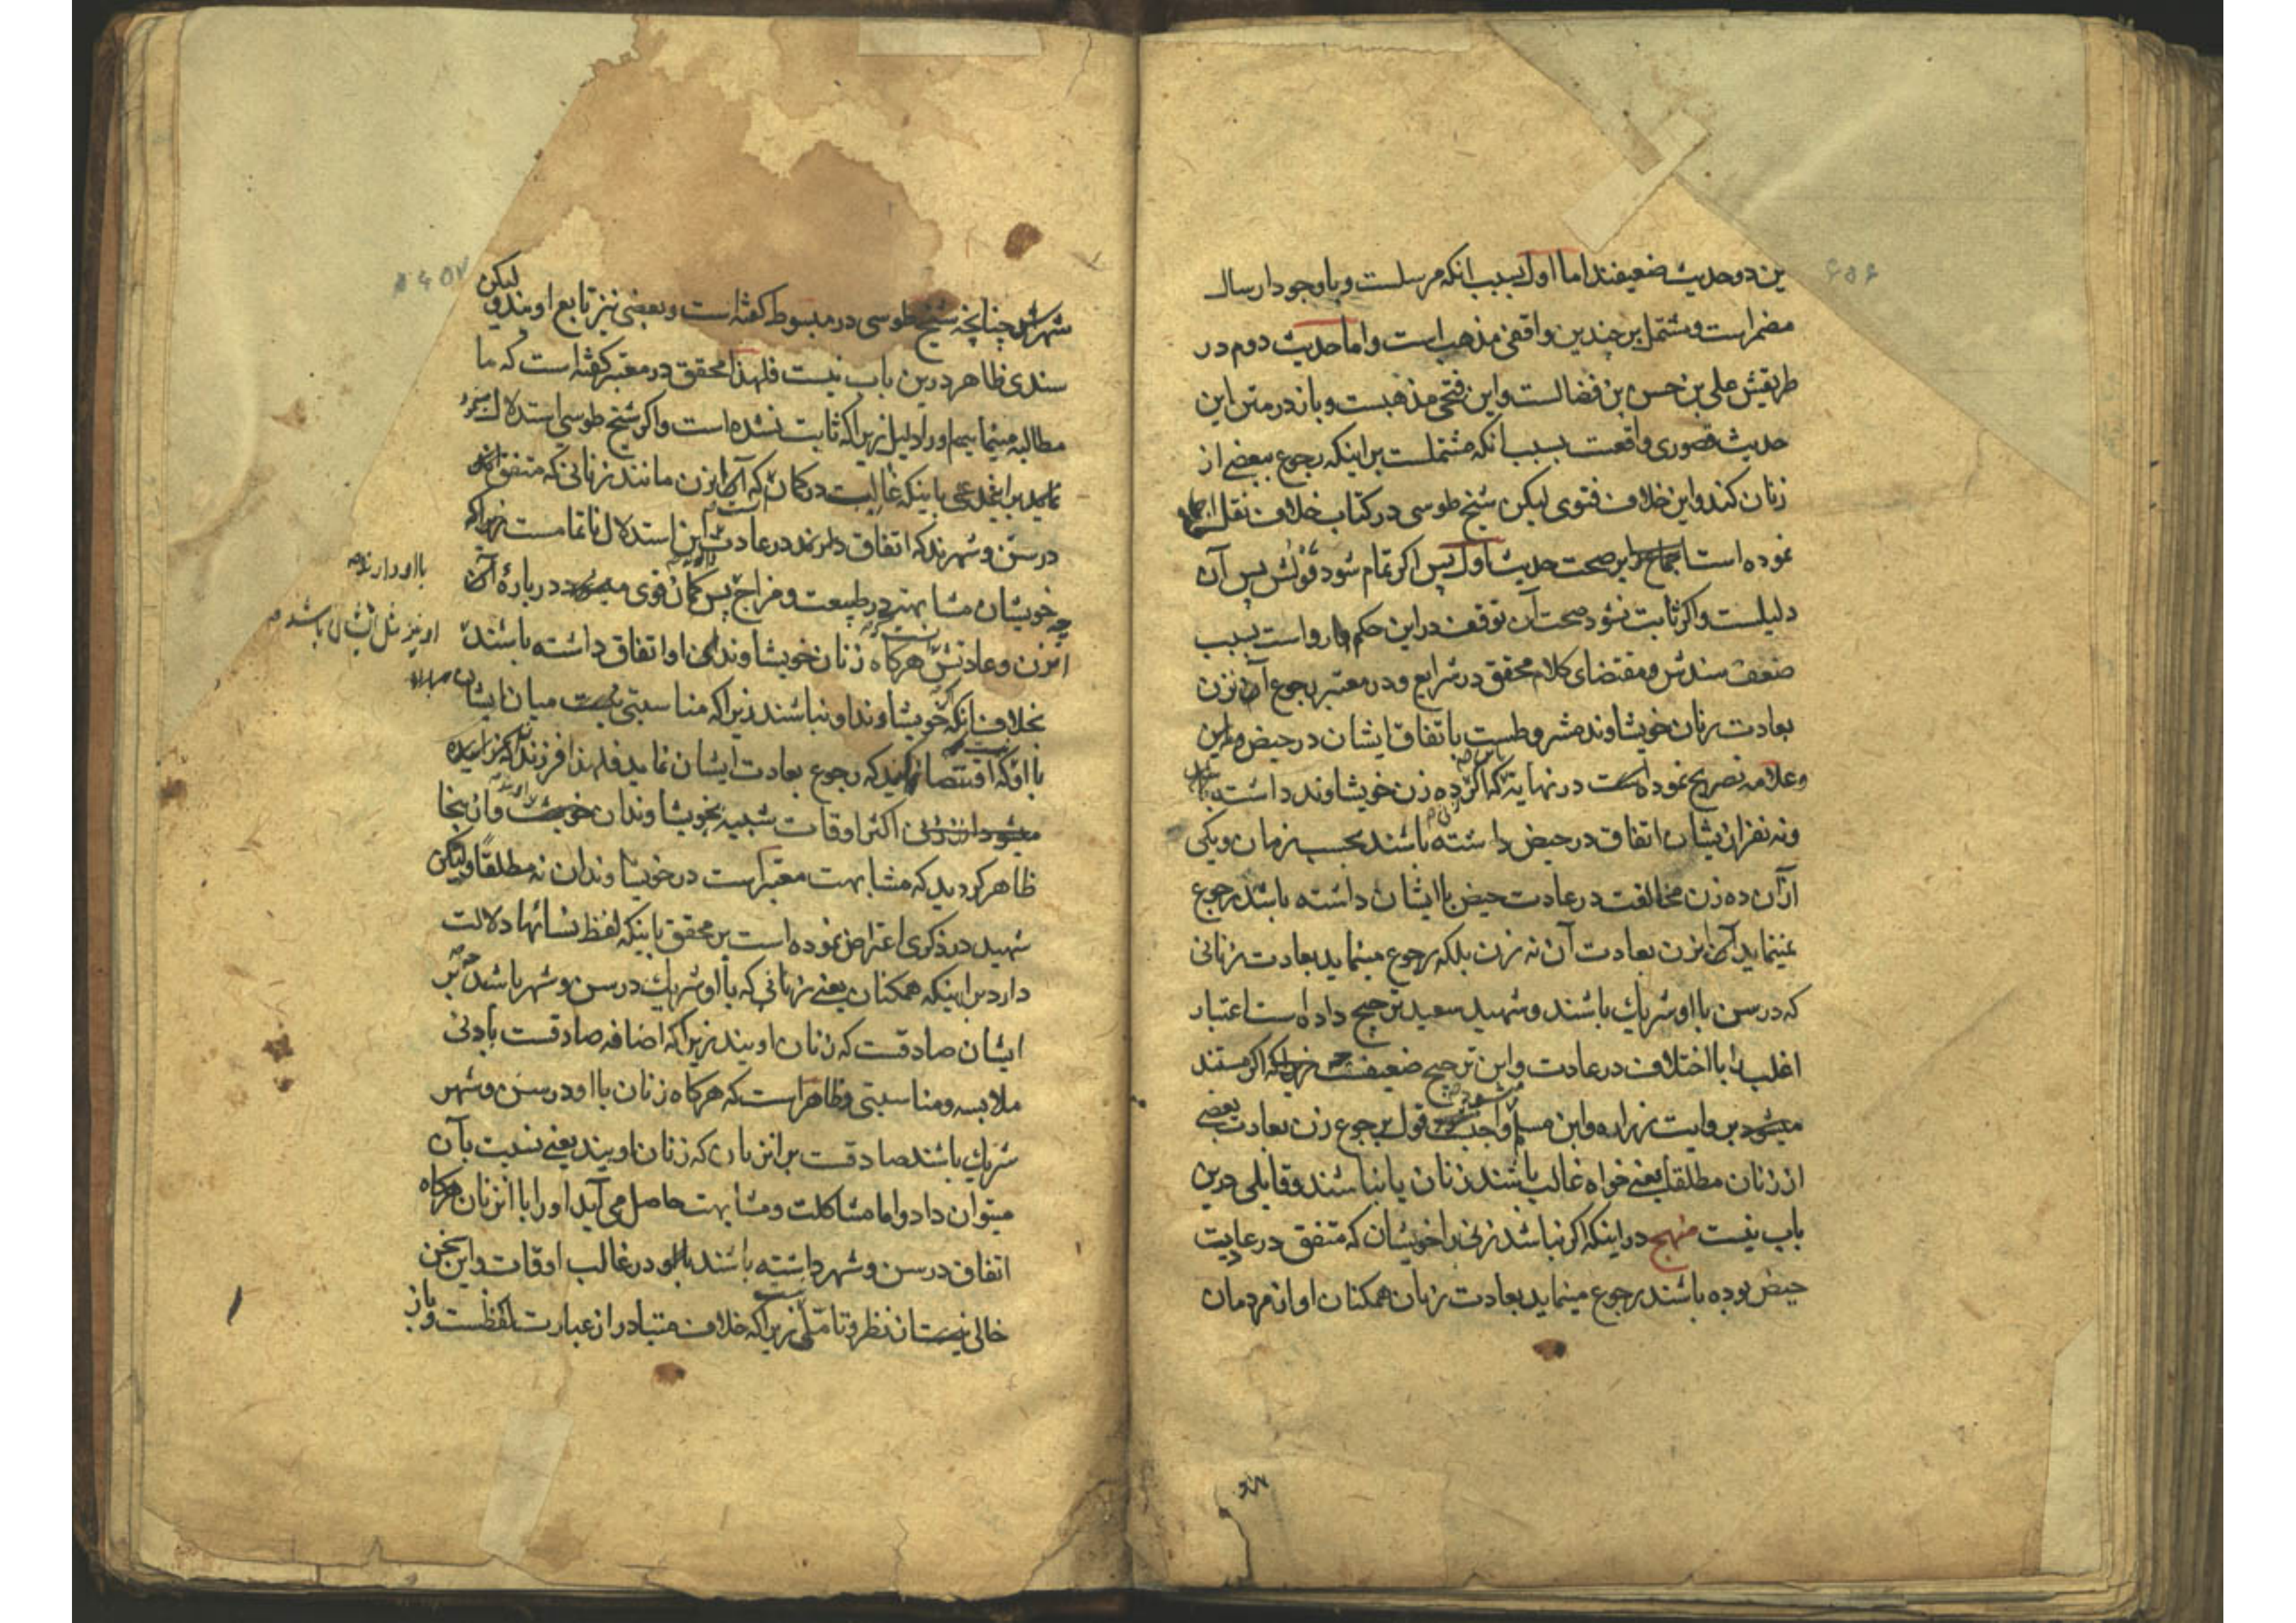 ین دو حدیث ضعیفند اما اول بسبب انکه مرسلست و باوجود ارسال
مضمر است و مشتمل بر چندین واقفی مذهب است و اما حدیث دوم در
طریقش علی بن حسن بن فضالست و این فتحی مذهبست و باز در متن این
حدیث قصوری واقعست بسبب انکه مشتملست بر اینکه رجوع ببعضی از
زنان کند و این خلاف فتوی لیکن شیخ طوسی در کتاب خلاف نقل
نموده است اجماع را بر صحت حدیث اول پس اکر تمام شود قولش پس آن
دلیلست و اکر ثابت نشود صحت آن توقف در این حکم روا است بسبب
ضعف سندش و مقتضای کلام محقق در شرایع و در معتبر رجوع آن زن
بعادت زنان خویشاوند مشروطست باتفاق ایشان در حیض
وعلامه تصریح نموده است در نهایة که اکر ده زن خویشاوند داشته باشد
ونه نفر ازیشان اتفاق در حیض داشته باشند بحسب زمان و یکی
ازآن ده زن مخالفت در عادت حیض باایشان داشته باشد رجوع
نمینماید آن زن بعادت آن نه زن بلکه رجوع مینماید بعادت زنانی
که در سن بااو شریك باشند وشهید سعید ترجیح داده است اعتبار
اغلب را بااختلاف در عادت و این ترجیح ضعیفست زیراکه اکر مستند
میشود بروایت زراره وابن مسلم واجب قول برجوع زن بعادت بعضی
از زنان مطلقا یعنی خواه غالب باشند زنان یا نباشند و قایلی درین
باب نیست منهج در اینکه اکر نباشد زنی را خویشان که متفق در عادت
حیض بوده باشند رجوع مینماید بعادت زنان همکنان او از مردمان
شهرش چنانچه شیخ طوسی در مبسوط کفته است و بعضی نیز تابع اویند و لیکن
سندی ظاهر درین باب نیست فلهذا محقق در معتبر کفته است که ما
مطالبه مینماییم اورا دلیل زیراکه ثابت نشده است واکر شیخ طوسی استدلال
نماید براینمدعی باینکه غالبست در کمان که آن زن مانند زنانی که متفق اند
در سن و شهرند که اتفاق دارند در عادت این استدلال ناتمامست زیراکه
چه خویشان مشابهتند در طبیعت و مزاج پس کمان قوی درباره آن
انزن وعادتش هرکاه زنان خویشاوند او اتفاق داشته باشند
بااو دارند صح
او نیز مثل ایشان باشد صح
بخلاف انکه خویشاوند او نباشند زیراکه مناسبتی نیست میان ایشان
بااو که اقتضا کند که رجوع بعادت ایشان نماید فلهذا فرزند
اکثر اوقات شبیه بخویشاوندان و از ینجا
ظاهر کردید که مشابهت معتبر است در خویشاوندان نه مطلقا و لیکن
شهید در ذکری اعتراض نموده است بر محقق باینکه لفظ نسائها دلالت
دارد بر اینکه همکنان یعنی زنانی که بااو شریك در سن و شهر باشند چه بر
ایشان صادقست که زنان اویند زیراکه اضافه صادقست بادنی
ملابسه و مناسبتی وظاهر است که هرکاه زنان بااو در سن و شهر
شریك باشند صادقست بر انزنان که زنان اویند یعنی نسبت بآن
میتوان داد واما مشاکلت و مشابهت حاصل می آید او را با انزنان هرکاه
اتفاق در سن و شهر داشته باشند در غالب اوقات و این سخن
خالی از نظر و تاملی زیراکه خلاف متبادر از عبارت لفظست و باز